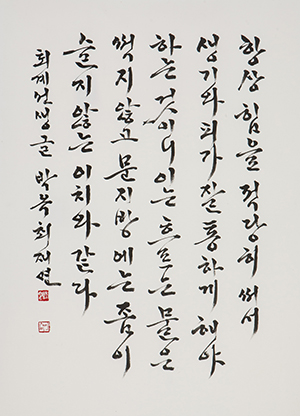 항상 힘을 적당히 써서
생기와 피가 잘 통하게 해야
하는 것이니 이는 흐르는 물은
썩지 않고 문지방에는 좀이
슬지 않는 이치와 같다
퇴계선생 글 최재연